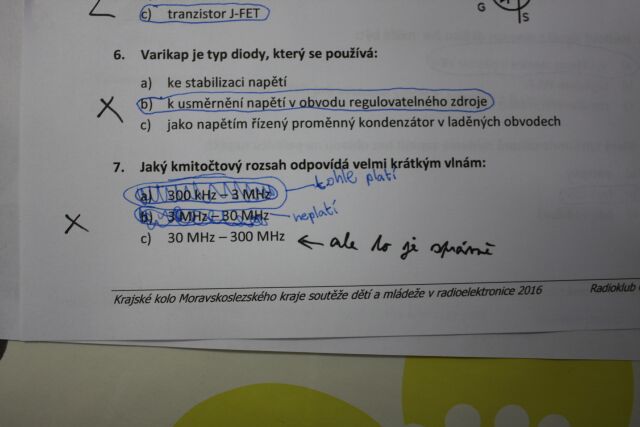 c) tranzistor J-FET
G
S
6. Varikap je typ diody, který se používá:
a) ke stabilizaci napětí
b) k usměrnění napětí v obvodu regulovatelného zdroje
c) jako napětím řízený proměnný kondenzátor v laděných obvodech
7. Jaký kmitočtový rozsah odpovídá velmi krátkým vlnám:
tohle platí
a) 300 kHz – 3 MHz
b) 3 MHz – 30 MHz neplatí
c) 30 MHz – 300 MHz ← ale to je správně
Krajské kolo Moravskoslezského kraje soutěže dětí a mládeže v radioelektronice 2016 Radioklub